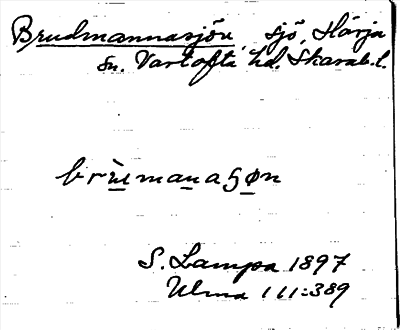 Brudmannasjön, sjö, Härja
sn. Vartofta hd. Skarab.l.
brùmanaʂøn
S. Lampa 1897
Ulma 111:389